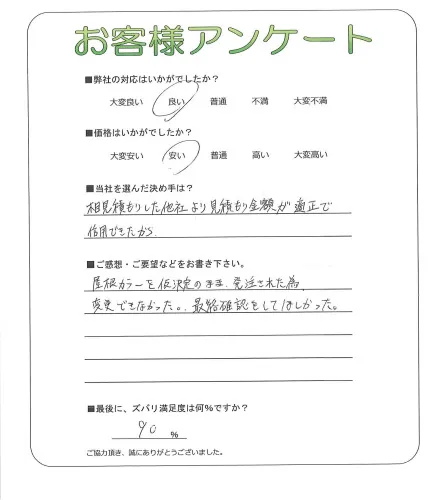 お客様アンケート
■弊社の対応はいかがでしたか？
大変良い 良い 普通 不満 大変不満
■価格はいかがでしたか？
大変安い 安い 普通 高い 大変高い
■当社を選んだ決め手は？
相見積もりした他社より見積もり金額が適正で
信用できたから
■ご感想・ご要望などをお書き下さい。
屋根カラーを仮決定のまま、発注された為、
変更できなかった。最終確認をしてほしかった。
■最後に、ズバリ満足度は何%ですか？
90 %
ご協力頂き、誠にありがとうございました。